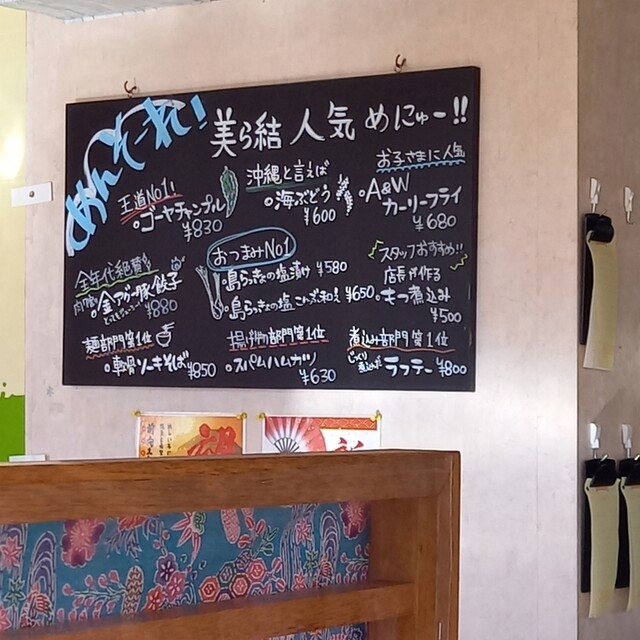 めんそーれ!
美ら結 人気 めにゅー!!
王道No1!
ゴーヤチャンプル
¥830
沖縄と言えば
海ぶどう
¥600
お子さまに人気
A&W
カーリーフライ
¥680
全年代絶賛!
肉汁
金アグー豚餃子
¥880
おつまみNo1
島らっきょの塩漬け ¥580
島らっきょの塩こんぶ和え ¥650
スタッフおすすめ!!
店長が作る
もつ煮込み
¥500
麺部門第1位
軟骨ソーキそば ¥850
揚げ物部門第1位
スパムハムカツ
¥630
煮込み部門第1位
じっくり
煮込んだ
ラフテー ¥800